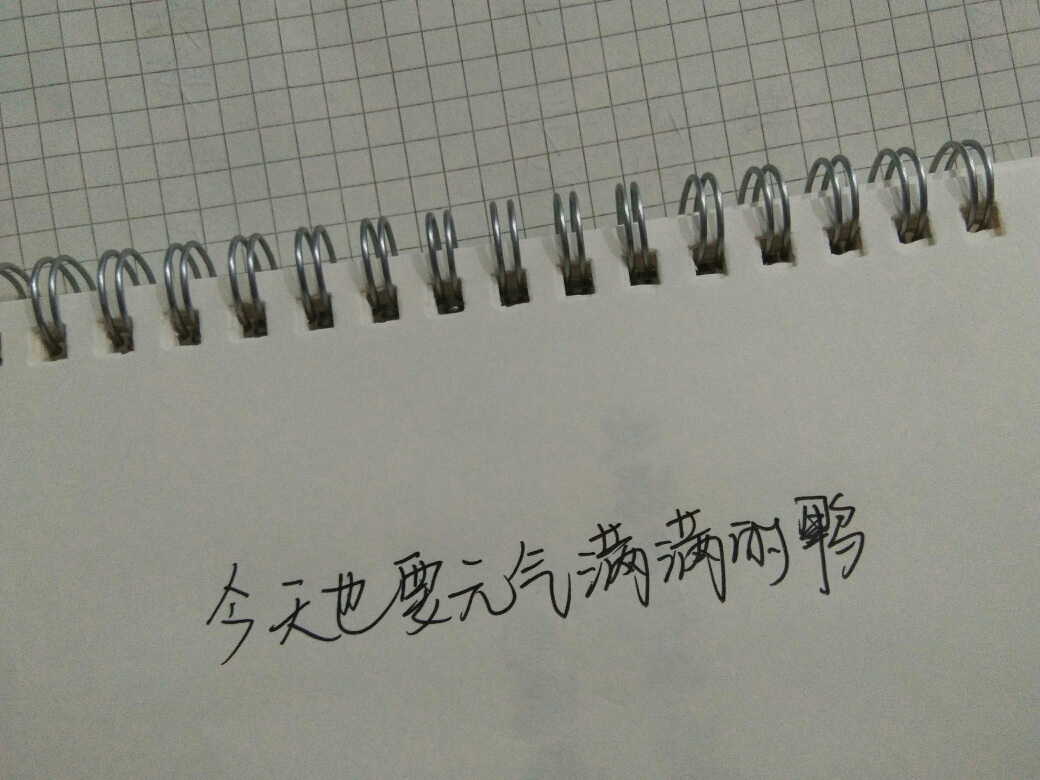 今天也要元气满满的鸭